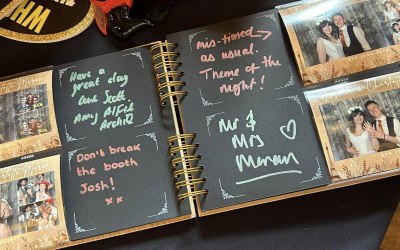 WHO
Have a
great day
Love Scott,
Amy Alfie
Archie
Don't break
the booth
Josh!
x x
mis-timed →
as usual.
Theme of the
night!
Mr &
Mrs